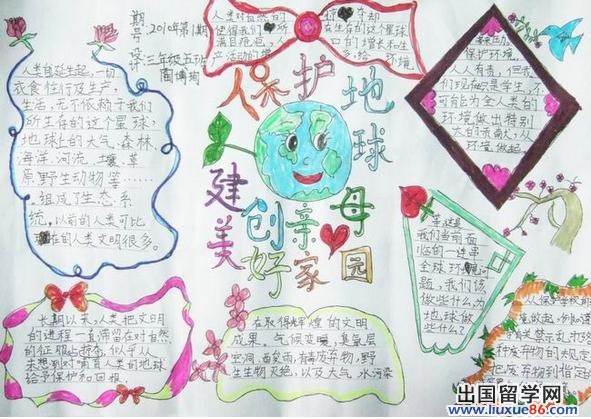 期号: 2010年第1期
三年级五班
人类自诞生起,一切
衣食住行及生产,
生活,无不依赖于我们
所生存的这个星球,
地球上的大气、森林、
海洋、河流、土壤、草
原、野生动物等……
组成了生态系
统。以前的人类可比
现在的人类文明很多。
人类对自然的
使得我们所
满目疮疤
产活动的增
在生存的这个星球
口的增长和生
环境
保护地球
建创亲母
美好家园
保护环境,
人人有责,但我
们现在只是学生,不
可能为全人类的
环境做出特别
大的贡献,从
环境做起。
我们当前面
临的一连串
全球环境问
题,我们该
做些什么,为
地球做
些什么?
长期以来,人类把文明
的进程一直滞留在对自然
的征服上,似乎从
未想到对哺育人类的地球
给予保护和回报。
在取得辉煌的文明
成果,气候变暖、臭氧层
空洞、酸雨、有毒废弃物、野
生生物灭绝、以及大气、水污染
从保护学校的
境做起,例如遵
有关禁止乱
弃废弃物的规定
把废弃物到指
出国留学网
www.liuxue86.com